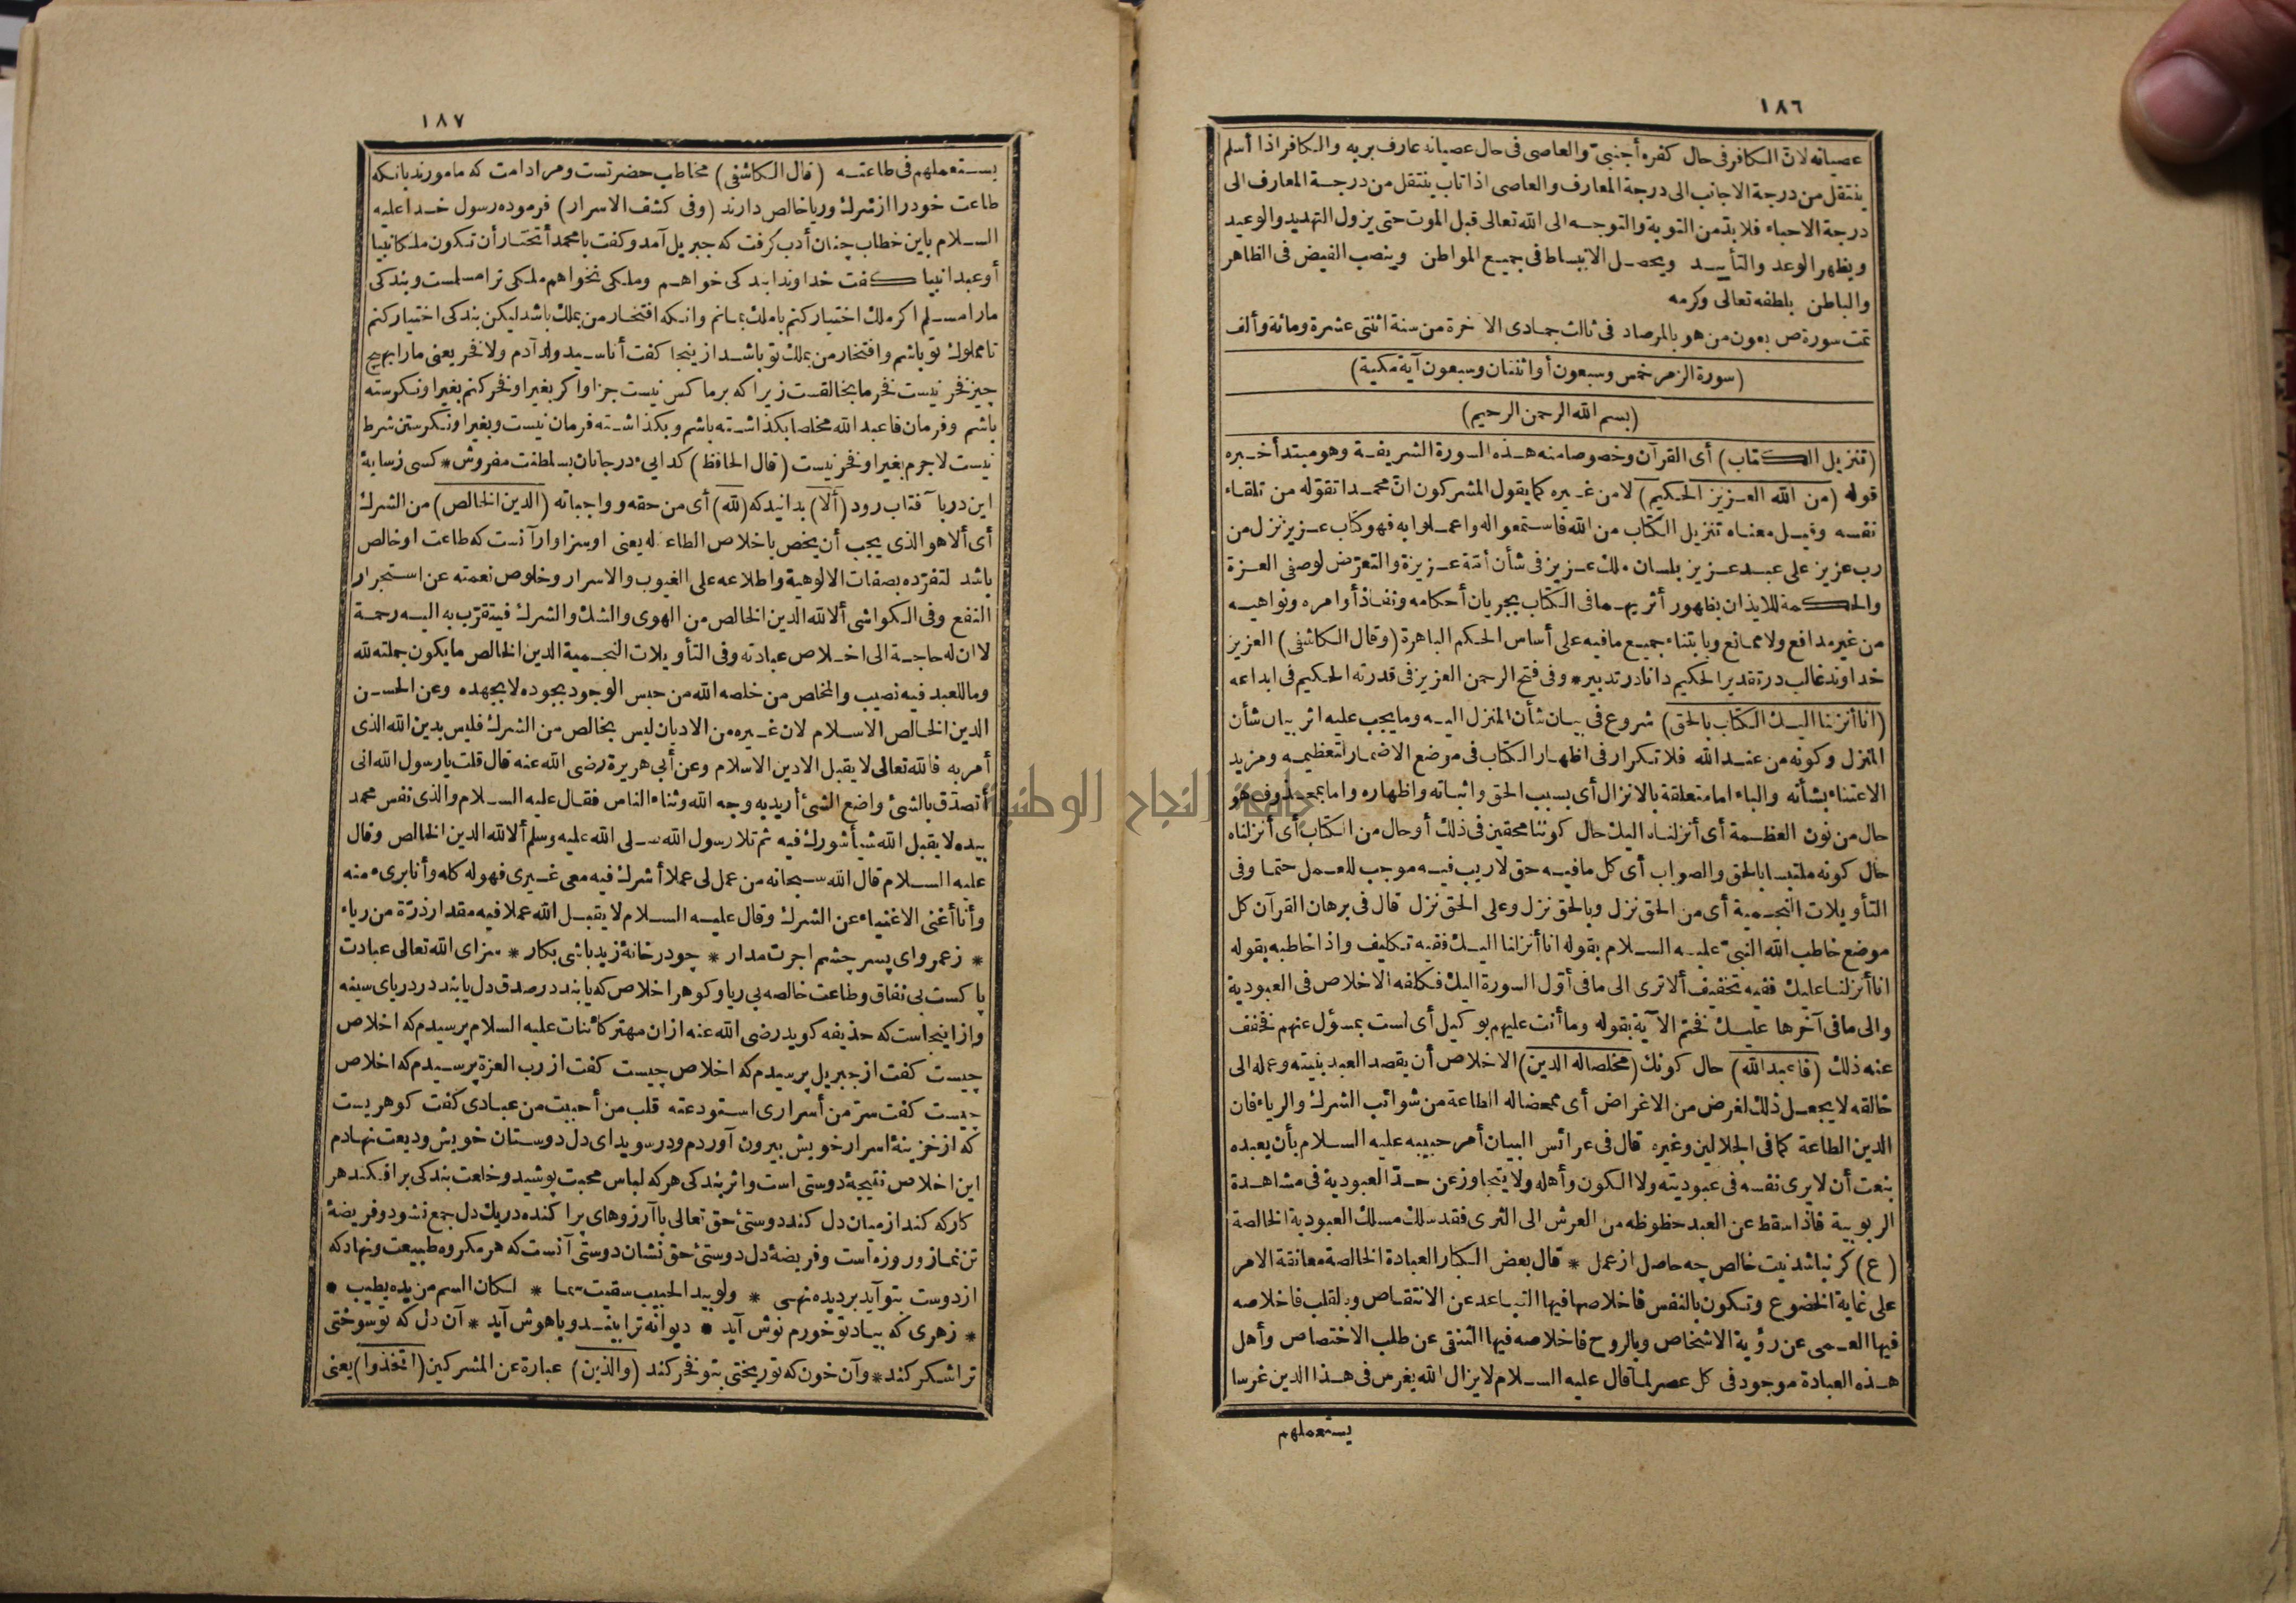 ١٨٦
عصيانه لان الكافر فى حال كفره أجنبىّ والعاصى فى حال عصيانه عارف بربه والكافر اذا أسلم
ينتقل من درجة الاجانب الى درجة المعارف والعاصى اذا تاب ينتقل من درجة المعارف الى
درجة الاحباء فلا بدّ من التوبة والتوجه الى الله تعالى قبل الموت حتى يزول التهديد والوعيد
ويظهر الوعد والتأييد ويحصل الانبساط فى جميع المواطن وينصب الفيض فى الظاهر
والباطن بلطفه تعالى وكرمه
تمت سورة ص بعون من هو بالمرصاد فى ثالث جمادى الآخرة من سنة اثنتى عشرة ومائة وألف
(سورة الزمر خمس وسبعون أو اثنتان وسبعون آية مكية)
(بسم الله الرحمن الرحيم)
(تنزيل الكتاب) أى القرآن وخصوصا منه هذه السورة الشريفة وهو مبتدأ خبره
قوله (من الله العزيز الحكيم) لا من غيره كما يقول المشركون انّ محمدا تقوّله من تلقاء
نفسه وقيل معناه تنزيل الكتاب من الله فاستمعوا له واعملوا به فهو كتاب عزيز نزل من
رب عزيز على عبد عزيز بلسان ملك عزيز فى شأن أمّة عزيزة والتعرّض لوصفى العزة
والحكمة للايذان بظهور أثريهما فى الكتاب بجريان أحكامه ونفاذ أوامره ونواهيه
من غير مدافع ولا ممانع وبابتناء جميع ما فيه على أساس الحكم الباهرة (وقال الكاشفى) العزيز
خداوند غالب در تقدير الحكيم دانا در تدبير * وفى فتح الرحمن العزيز فى قدرته الحكيم فى ابداعه
(انا أنزلنا اليك الكتاب بالحق) شروع فى بيان شأن المنزل اليه وما يجب عليه اثر بيان شأن
المنزل وكونه من عند الله فلا تكرار فى اظهار الكتاب فى موضع الاضمار لتعظيمه ومزيد
الاعتناء بشأنه والباء اما متعلقة بالانزال أى بسبب الحق واثباته واظهاره واما بمحذوف هو
حال من نون العظمة أى أنزلناه اليك حال كوننا محقين فى ذلك أو حال من الكتاب أى أنزلناه
حال كونه ملتبسا بالحق والصواب أى كل ما فيه حق لا ريب فيه موجب للعمل حتما وفى
التأويلات النجمية أى من الحق نزل وبالحق نزل وعلى الحق نزل قال فى برهان القرآن كل
موضع خاطب الله النبىّ عليه السلام بقوله انا أنزلنا اليك ففيه تكليف واذا خاطبه بقوله
انا أنزلنا عليك ففيه تخفيف ألا ترى الى ما فى أوّل السورة اليك فكلفه الاخلاص فى العبودية
والى ما فى آخرها عليك فختم الآية بقوله وما أنت عليهم بوكيل أى لست بمسؤل عنهم فخفف
عنه ذلك (فاعبد الله) حال كونك (مخلصا له الدين) الاخلاص أن يقصد العبد بنيته وعمله الى
خالقه لا يجعل ذلك لغرض من الاغراض أى ممحضا له الطاعة من شوائب الشرك والرياء فان
الدين الطاعة كما فى الجلالين وغيره قال فى عرائس البيان أمر حبيبه عليه السلام بأن يعبده
بنعت أن لا يرى نفسه فى عبوديته ولا الكون وأهله ولا يتجاوز عن حدّ العبودية فى مشاهدة
الربوبية فاذا سقط عن العبد حظوظه من العرش الى الثرى فقد سلك مسلك العبودية الخالصة
(ع) كر نباشد نيت خالص چه حاصل از عمل * قال بعض الكبار العبادة الخالصة معانقة الامر
على غاية الخضوع وتكون بالنفس فاخلاصها فيها التباعد عن الانتقاص وبالقلب فاخلاصه
فيها العمى عن رؤية الاشخاص وبالروح فاخلاصه فيها التنقى عن طلب الاختصاص وأهل
هذه العبادة موجود فى كل عصر لما قال عليه السلام لا يزال الله يغرس فى هذا الدين غرسا
يستعملهم
١٨٧
يستعملهم فى طاعته (قال الكاشفى) مخاطب حضرتست ومراد امت كه مأمورند بانكه
طاعت خود را از شرك وريا خالص دارند (وفى كشف الاسرار) فرموده رسول خدا عليه
السلام باين خطاب چنان أدب كرفت كه جبريل آمد وكفت يا محمد أتختار أن تكون ملكا نبيا
أو عبدا نبيا كفت خداوندا بندكى خواهم وملكى نخواهم ملكى ترا مسلمست وبندكى
مارا مسلم اكر ملك اختيار كنم با ملك بمانم وانكه افتخار من بملك باشد ليكن بندكى اختيار كنم
تا مملوك تو باشم وافتخار من بملك تو باشد ازينجا كفت أنا سيد ولد آدم ولا فخر يعنى مارا بهيچ
چيز فخر نيست فخر ما بخالقست زيرا كه بر ما كس نيست جز او اكر بغير او فخر كنم بغير او نكرسته
باشم وفرمان فاعبد الله مخلصا بكذاشته باشم وبكذاشته فرمان نيست وبغير او نكرستن شرط
نيست لا جرم بغير او فخر نيست (قال الحافظ) كدايىء در جانان بسلطنت مفروش * كسى ز سايهٔ
اين در با آفتاب رود (ألا) بدانيد كه (لله) أى من حقه وواجباته (الدين الخالص) من الشرك
أى ألا هو الذى يجب أن يخص باخلاص الطاعة له يعنى او سزاوار آنست كه طاعت او خالص
باشد لتفرّده بصفات الالوهية واطلاعه على الغيوب والاسرار وخلوص نعمته عن استجرار
النفع وفى الكواشى ألا لله الدين الخالص من الهوى والشك والشرك فيتقرّب به اليه رحمة
لا ان له حاجة الى اخلاص عبادته وفى التأويلات النجمية الدين الخالص ما يكون جملته لله
وما للعبد فيه نصيب والمخلص من خلصه الله من حبس الوجود بجوده لا بجهده وعن الحسن
الدين الخالص الاسلام لان غيره من الاديان ليس بخالص من الشرك فليس بدين الله الذى
أمر به فالله تعالى لا يقبل الا دين الاسلام وعن أبى هريرة رضى الله عنه قال قلت يا رسول الله انى
أتصدّق بالشئ واضع الشئ أريد به وجه الله وثناء الناس فقال عليه السلام والذى نفس محمد
بيده لا يقبل الله شيأ شورك فيه ثم تلا رسول الله صلى الله عليه وسلم ألا لله الدين الخالص وقال
عليه السلام قال الله سبحانه من عمل لى عملا أشرك فيه معى غيرى فهو له كله وأنا برىء منه
وأنا أغنى الاغنياء عن الشرك وقال عليه السلام لا يقبل الله عملا فيه مقدار ذرّة من رياء
* ز عمرو اى پسر چشم اجرت مدار * چو در خانهٔ زيد باشى بكار * سزاى الله تعالى عبادت
پاكست بى نفاق وطاعت خالصه بى ريا وكوهر اخلاص كه يابند در صدق دل يابند در درياى سينه
واز اينجاست كه حذيفه كويد رضى الله عنه ازان مهتر كائنات عليه السلام پرسيدم كه اخلاص
چيست كفت از جبريل پرسيدم كه اخلاص چيست كفت از رب العزة پرسيدم كه اخلاص
چيست كفت سرّ من أسرارى استودعته قلب من أحببت من عبادى كفت كوهريست
كه از خزينهٔ اسرار خويش بيرون آوردم ودر سويداى دل دوستان خويش وديعت نهادم
اين اخلاص نتيجهٔ دوستى است واثر بندكى هر كه لباس محبت پوشيد وخلعت بندكى برافكند هر
كار كه كند از ميان دل كند دوستئ حق تعالى با آرزوهاى پراكنده در يك دل جمع نشود وفريضهٔ
تن نماز وروزه است وفريضهٔ دل دوستئ حق نشان دوستى آنست كه هر مكروه طبيعت ونهاد كه
از دوست بتو آيد بر ديده نهى * ولو بيد الحبيب سقيت سما * لكان السم من يده يطيب *
* زهرى كه بياد تو خورم نوش آيد * ديوانه ترا بيند وباهوش آيد * آن دل كه تو سوختى
ترا شكر كند * وآن خون كه تو ريختى بتو فخر كند (والذين) عبارة عن المشركين (اتخذوا) يعنى
جامعة النجاح الوطنية